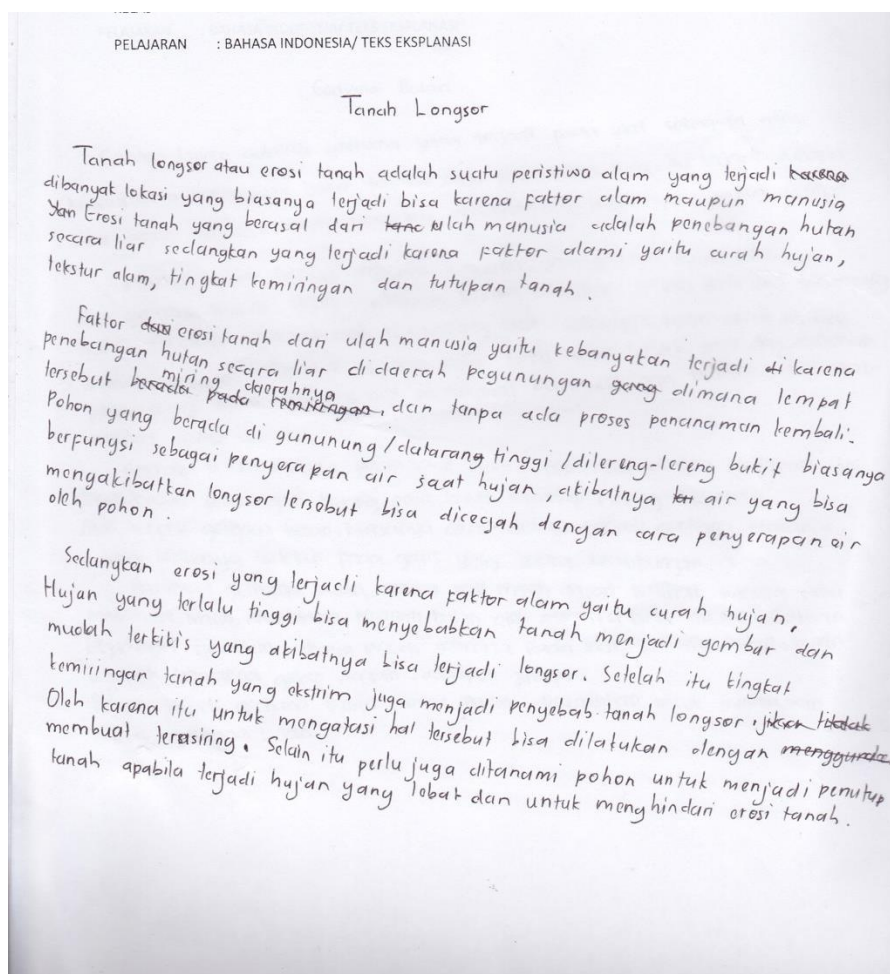 PELAJARAN : BAHASA INDONESIA/ TEKS EKSPLANASI
Tanah Longsor
Tanah longsor atau erosi tanah adalah suatu peristiwa alam yang terjadi karena
dibanyak lokasi yang biasanya terjadi bisa karena faktor alam maupun manusia
Yan Erosi tanah yang berasal dari tanc ulah manusia adalah penebangan hutan
secara liar sedangkan yang terjadi karena faktor alami yaitu curah hujan,
tekstur alam, tingkat kemiringan dan tutupan tanah.
Faktor dan erosi tanah dari ulah manusia yaitu kebanyakan terjadi di karena
penebangan hutan secara liar di daerah pegunungan yang dimana tempat
miring daerahnya
tersebut berada pada kemiringan, dan tanpa ada proses penanaman kembali.
Pohon yang berada di gununung/dataran tinggi/dilereng-lereng bukit biasanya
berfungsi sebagai penyerapan air saat hujan, akibatnya air yang bisa
mengakibatkan longsor tersebut bisa dicegah dengan cara penyerapan air
oleh pohon.
Sedangkan erosi yang terjadi karena faktor alam yaitu curah hujan.
Hujan yang terlalu tinggi bisa menyebabkan tanah menjadi gembur dan
mudah terkikis yang akibatnya bisa terjadi longsor. Setelah itu tingkat
kemiringan tanah yang ekstrim juga menjadi penyebab tanah longsor, tidak
Oleh karena itu untuk mengatasi hal tersebut bisa dilakukan dengan menggunda
membuat terasiring. Selain itu perlu juga ditanami pohon untuk menjadi penutup
tanah apabila terjadi hujan yang lebat dan untuk menghindari erosi tanah.